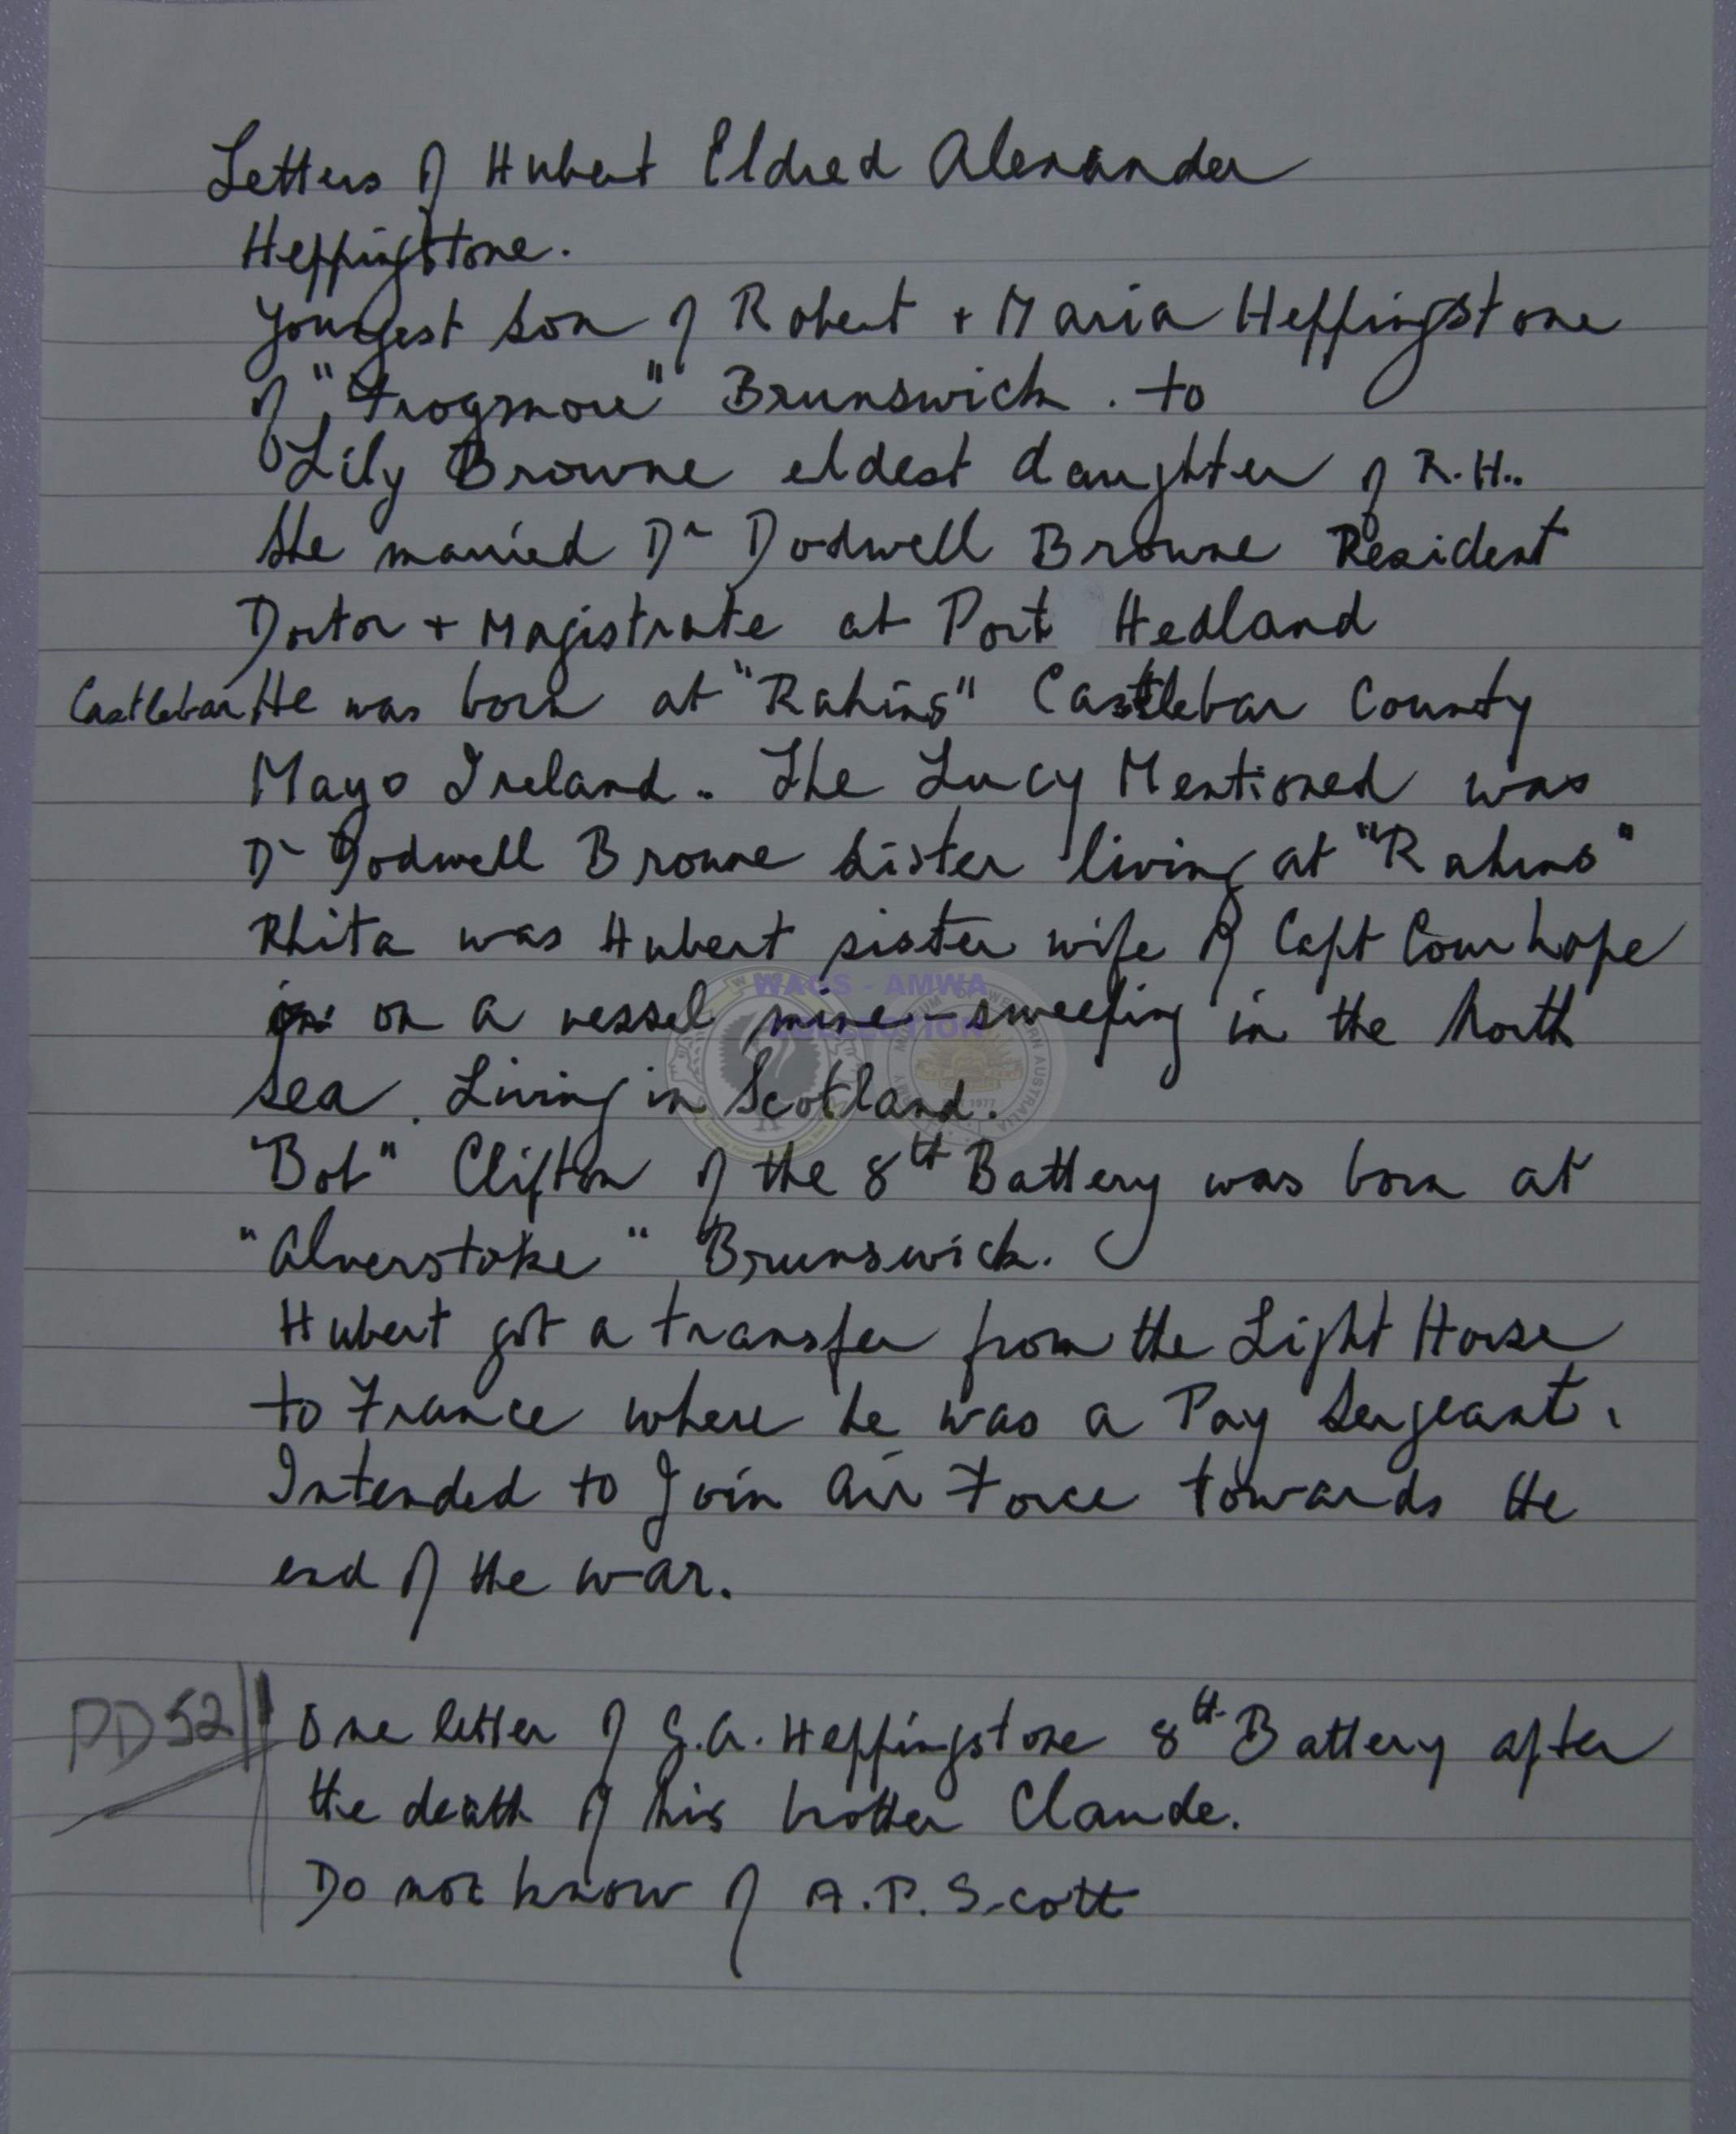 Letters of Hubert Eldred Alexander
Heppingstone.
Youngest son of Robert + Maria Heppingstone
of "Frogmore" Brunswick. to
Lily Browne eldest daughter of R.H..
She married Dr Dodwell Browne Resident
Doctor + Magistrate at Port Hedland
Castlebar He was born at "Rahins" Castlebar County
Mayo Ireland. The Lucy Mentioned was
Dr Dodwell Browne sister living at "Rahins"
Rhita was Hubert sister wife of Capt Courhope
on a vessel mine-sweeping in the North
Sea. Living in Scotland.
"Bob" Clifton of the 8th Battery was born at
"Alverstoke" Brunswick.
Hubert got a transfer from the Light Horse
to France where he was a Pay Sergeant.
Intended to Join Air Force towards the
end of the war.
PD52 One letter of G.A. Heppingstone 8th Battery after
the death of his brother Claude.
Do not know of A.P. Scott
WAGS - AMWA
COLLECTION